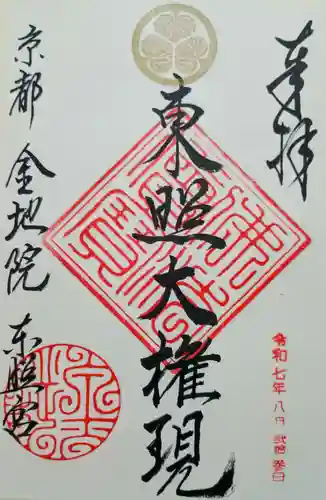 奉拝
東照大権現
令和七年八月弐拾参日
京都 金地院
東照宮